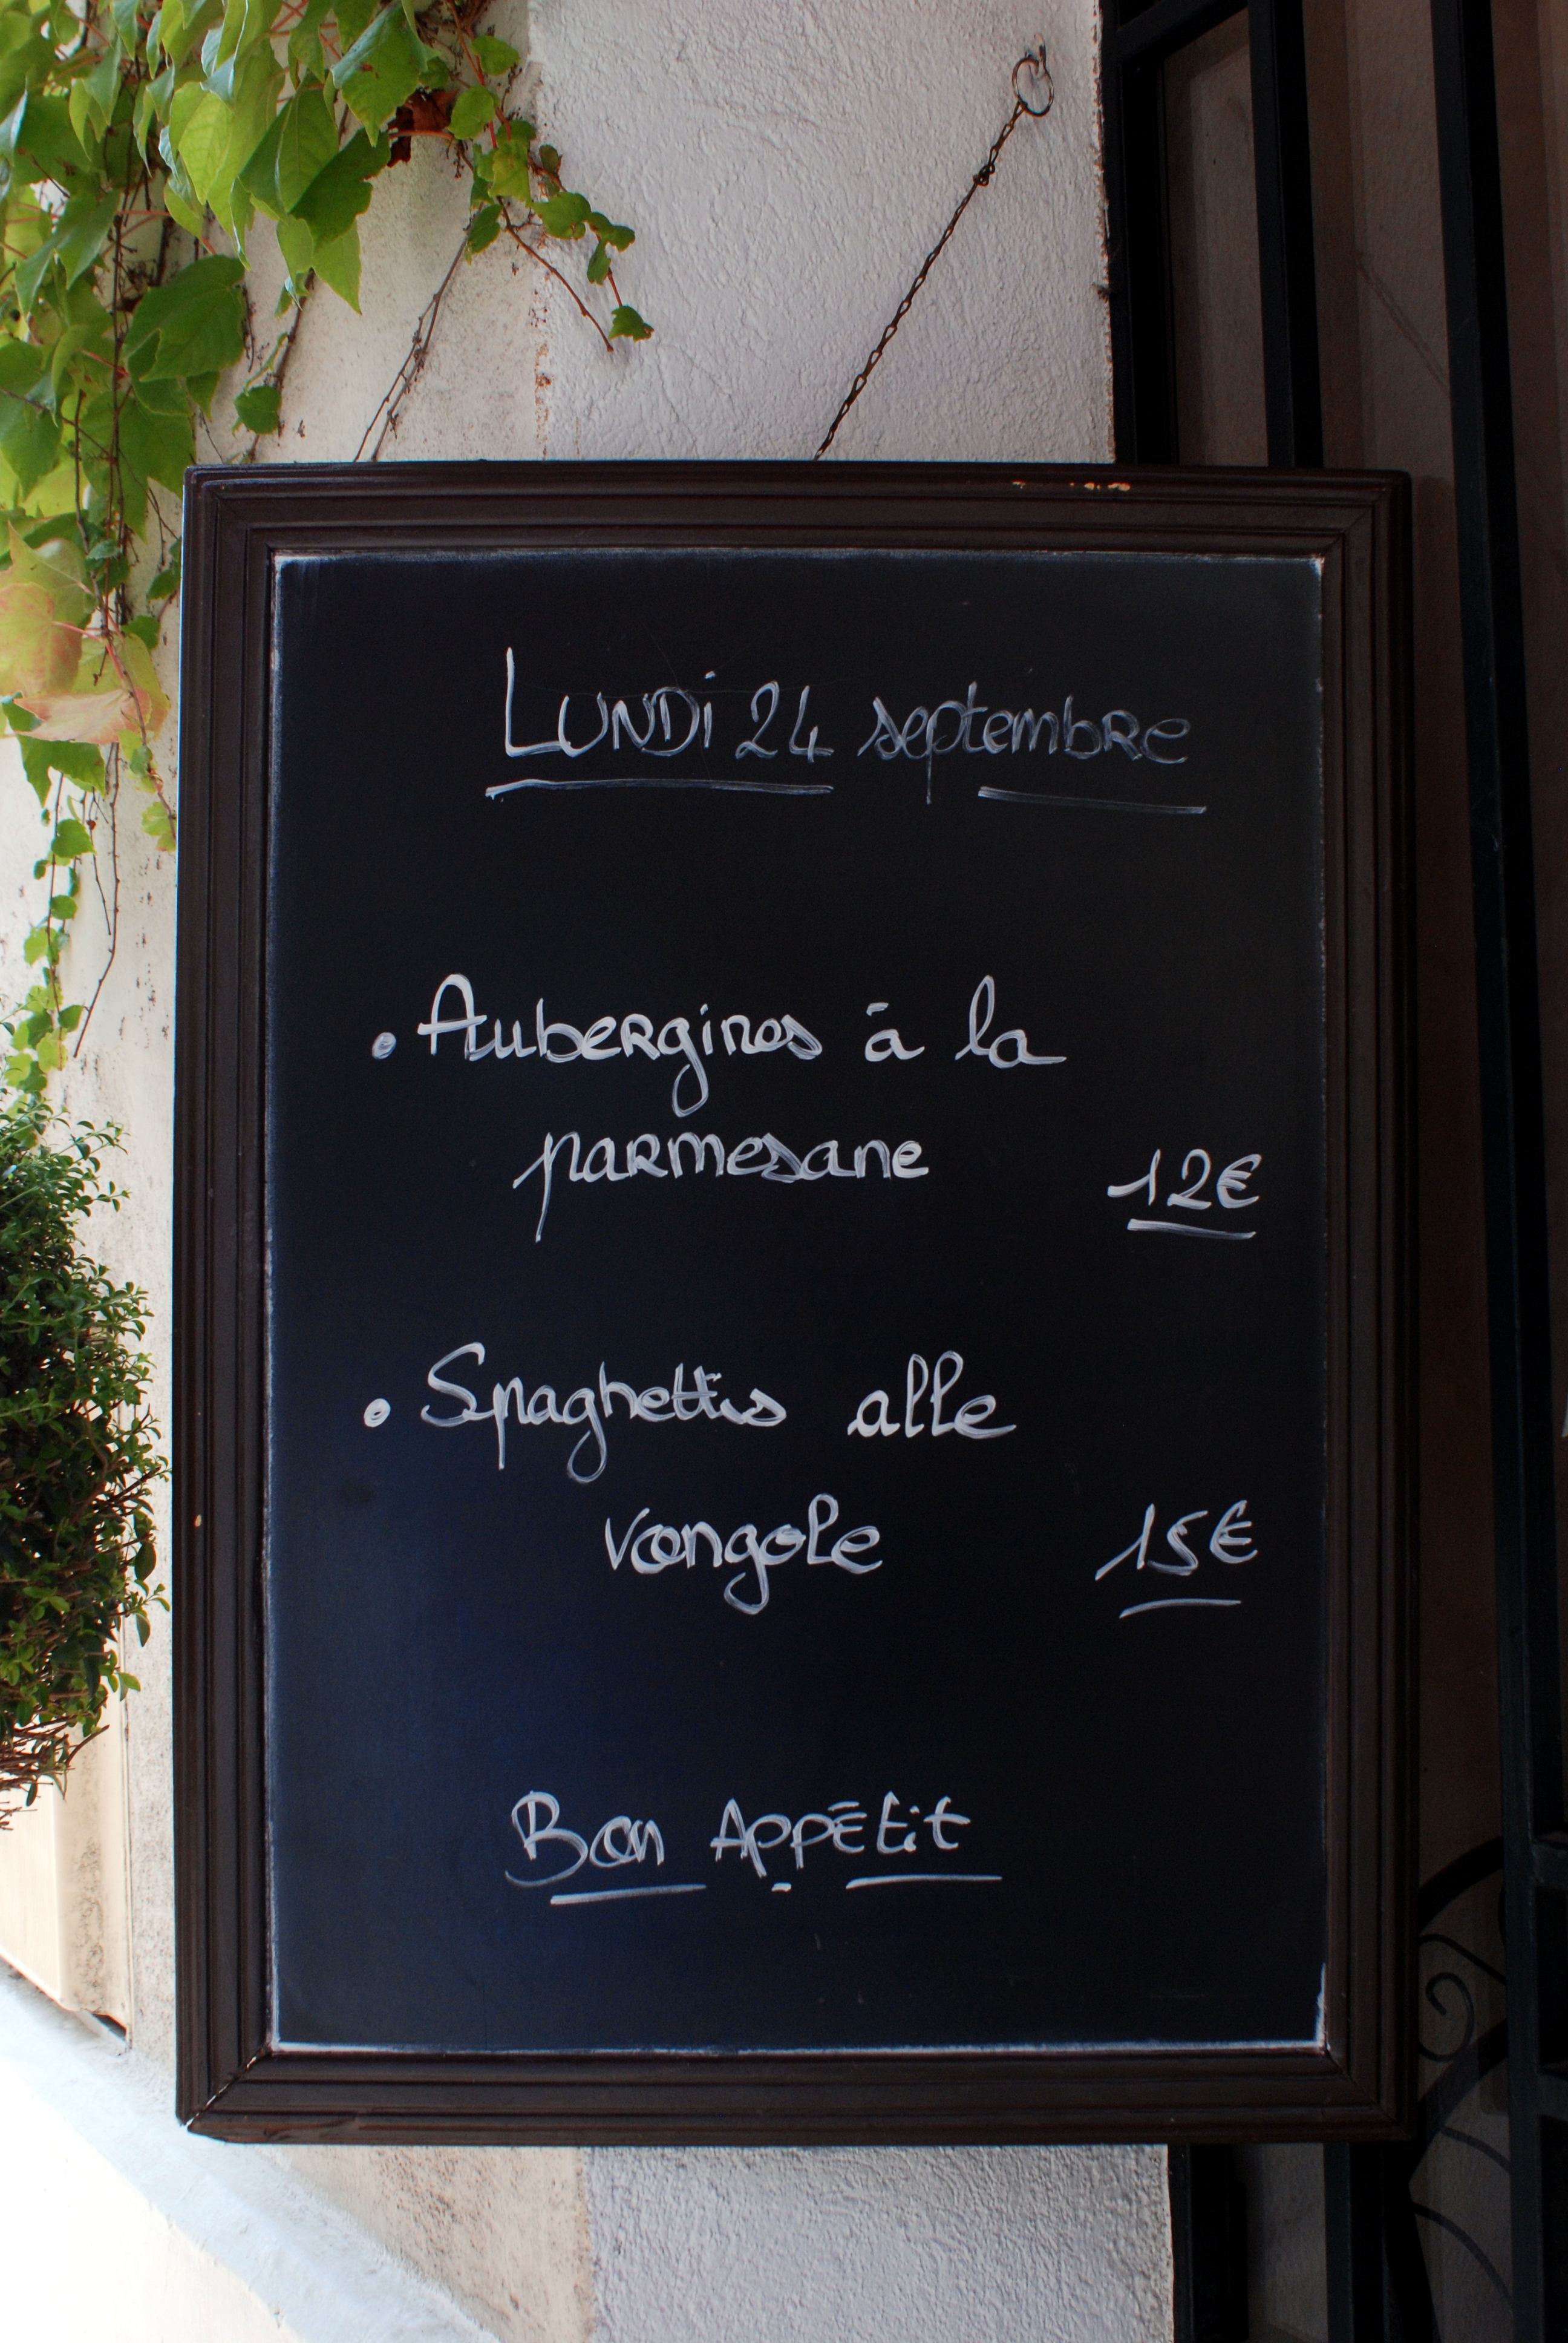 LUNDi 24 septembre
• Aubergines à la
parmesane 12€
• Spaghettis alle
vongole 15€
Bon Appétit